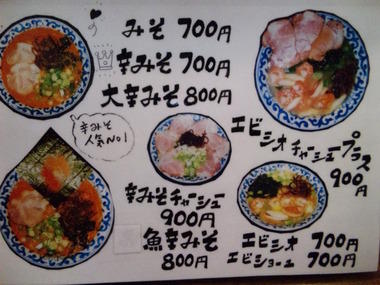 みそ 700円
辛みそ 700円
大辛みそ 800円
辛みそ
人気No1
エビシオチャーシュープラス
900円
辛みそチャーシュー
900円
魚辛みそ
800円
エビシオ 700円
エビショーユ 700円